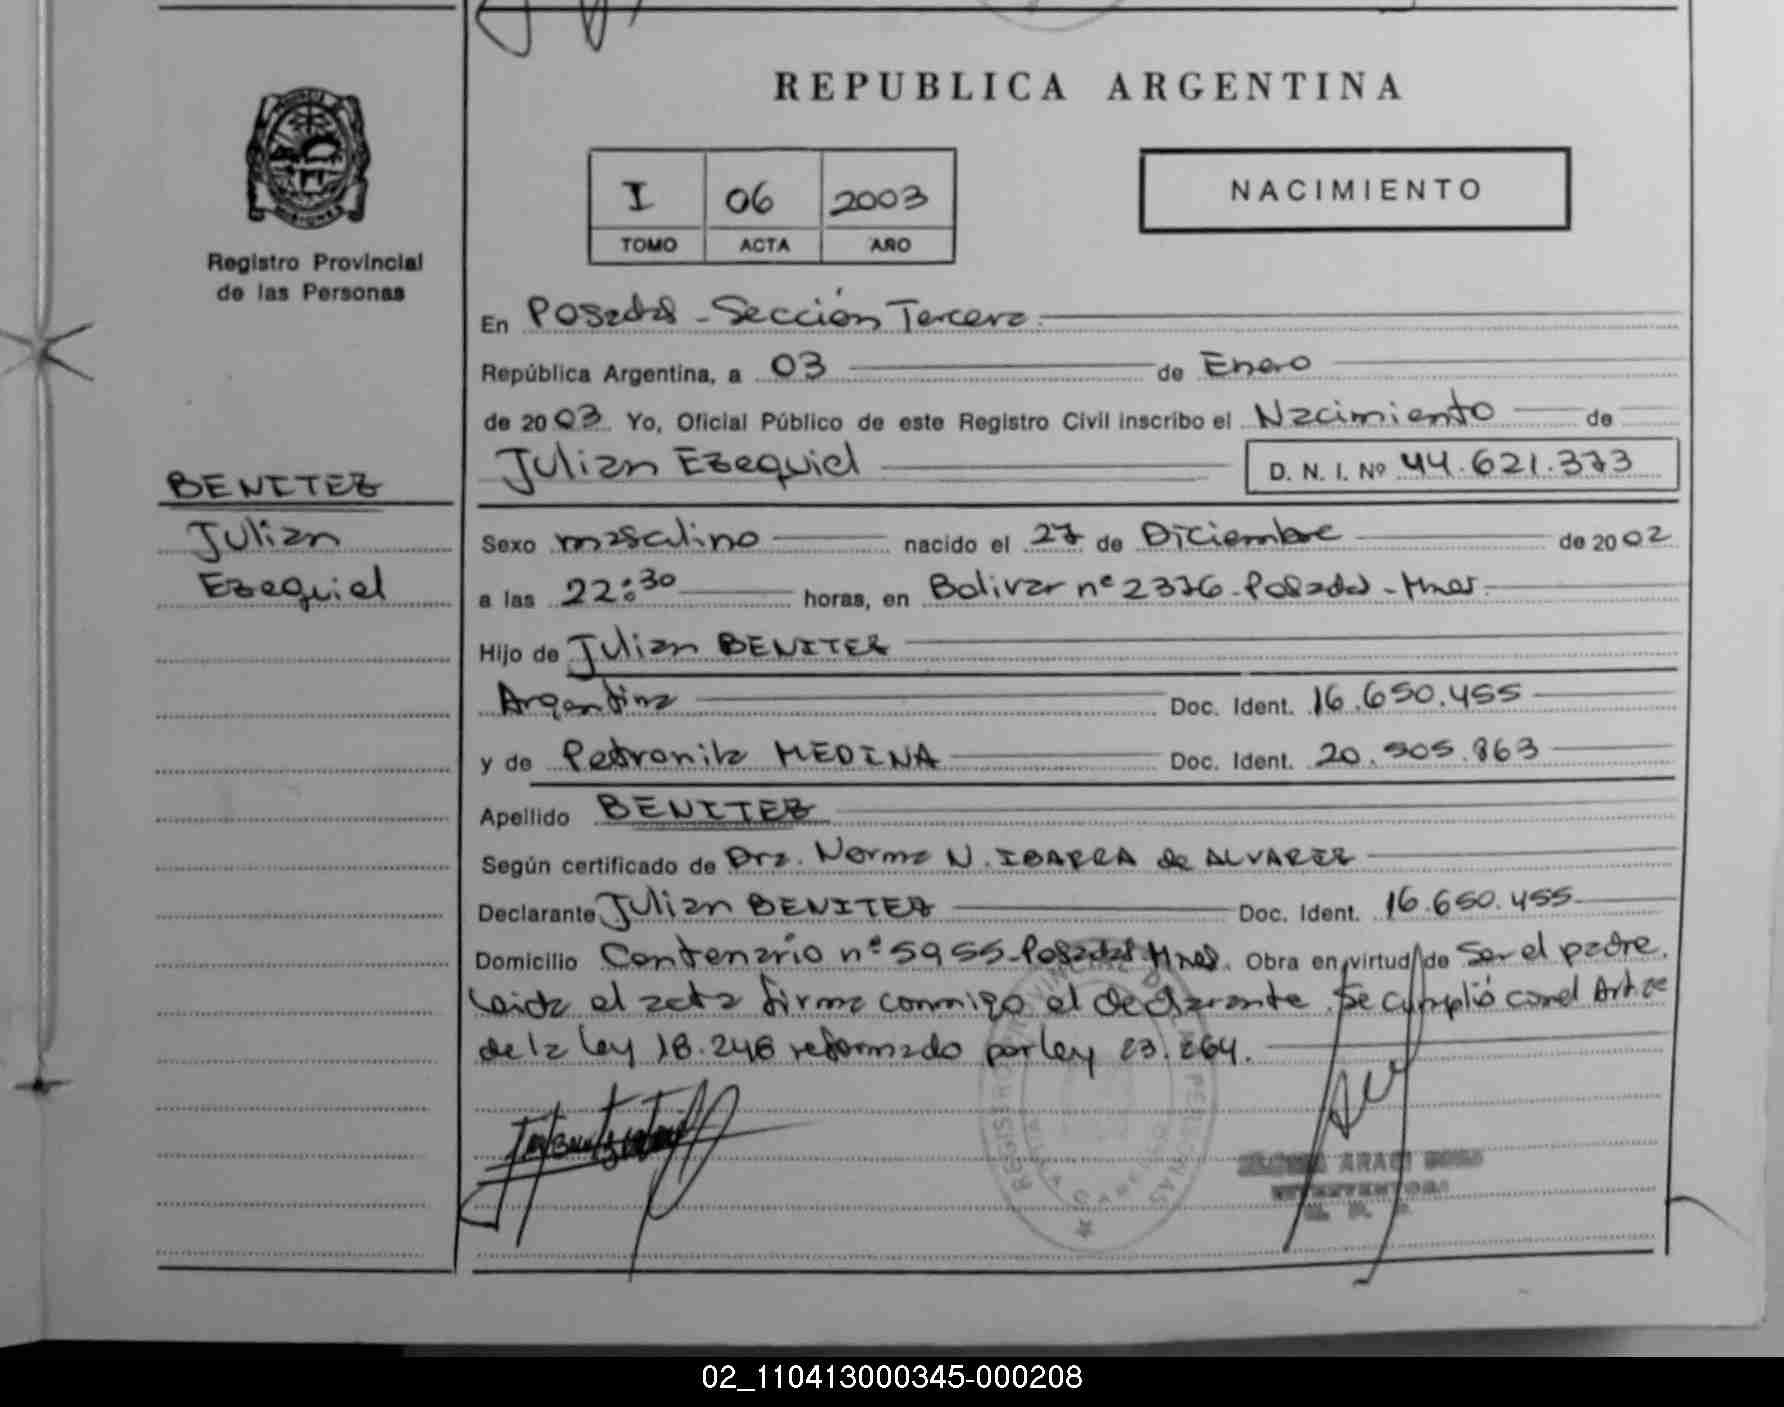 REPUBLICA ARGENTINA
I 06 2003
TOMO ACTA AÑO
NACIMIENTO
Registro Provincial
de las Personas
BENITEZ
Julian
Ezequiel
En Posadas - Sección Tercera.
República Argentina, a 03 de Enero
de 2003 Yo, Oficial Público de este Registro Civil inscribo el Nacimiento de
Julian Ezequiel D. N. I. Nº 44.621.373
Sexo masculino nacido el 27 de Diciembre de 2002
a las 22:30 horas, en Bolivar nº 2376 - Posadas - Mnes.
Hijo de Julian BENITEZ
Argentina Doc. Ident. 16.650.455
y de Petronila MEDINA Doc. Ident. 20.505.863
Apellido BENITEZ
Según certificado de Dra. Norma N. IBARRA de ALVAREZ
Declarante Julian BENITEZ Doc. Ident. 16.650.455
Domicilio Centenario nº 5955 - Posadas Mnes. Obra en virtud de Ser el padre.
Leida el acta firma conmigo el declarante. Se cumplió con el Art.
de la Ley 18.248 reformado por Ley 23.264.
REGISTRO PROVINCIAL DE LAS PERSONAS
ARACI
02_110413000345-000208